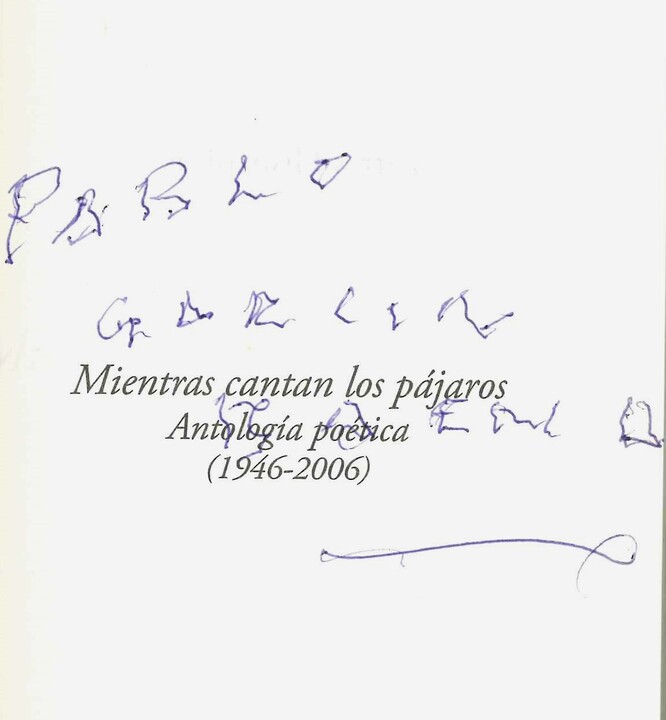 PABLO
GARCIA
Mientras cantan los pájaros
Antología poética
BAENA
(1946-2006)